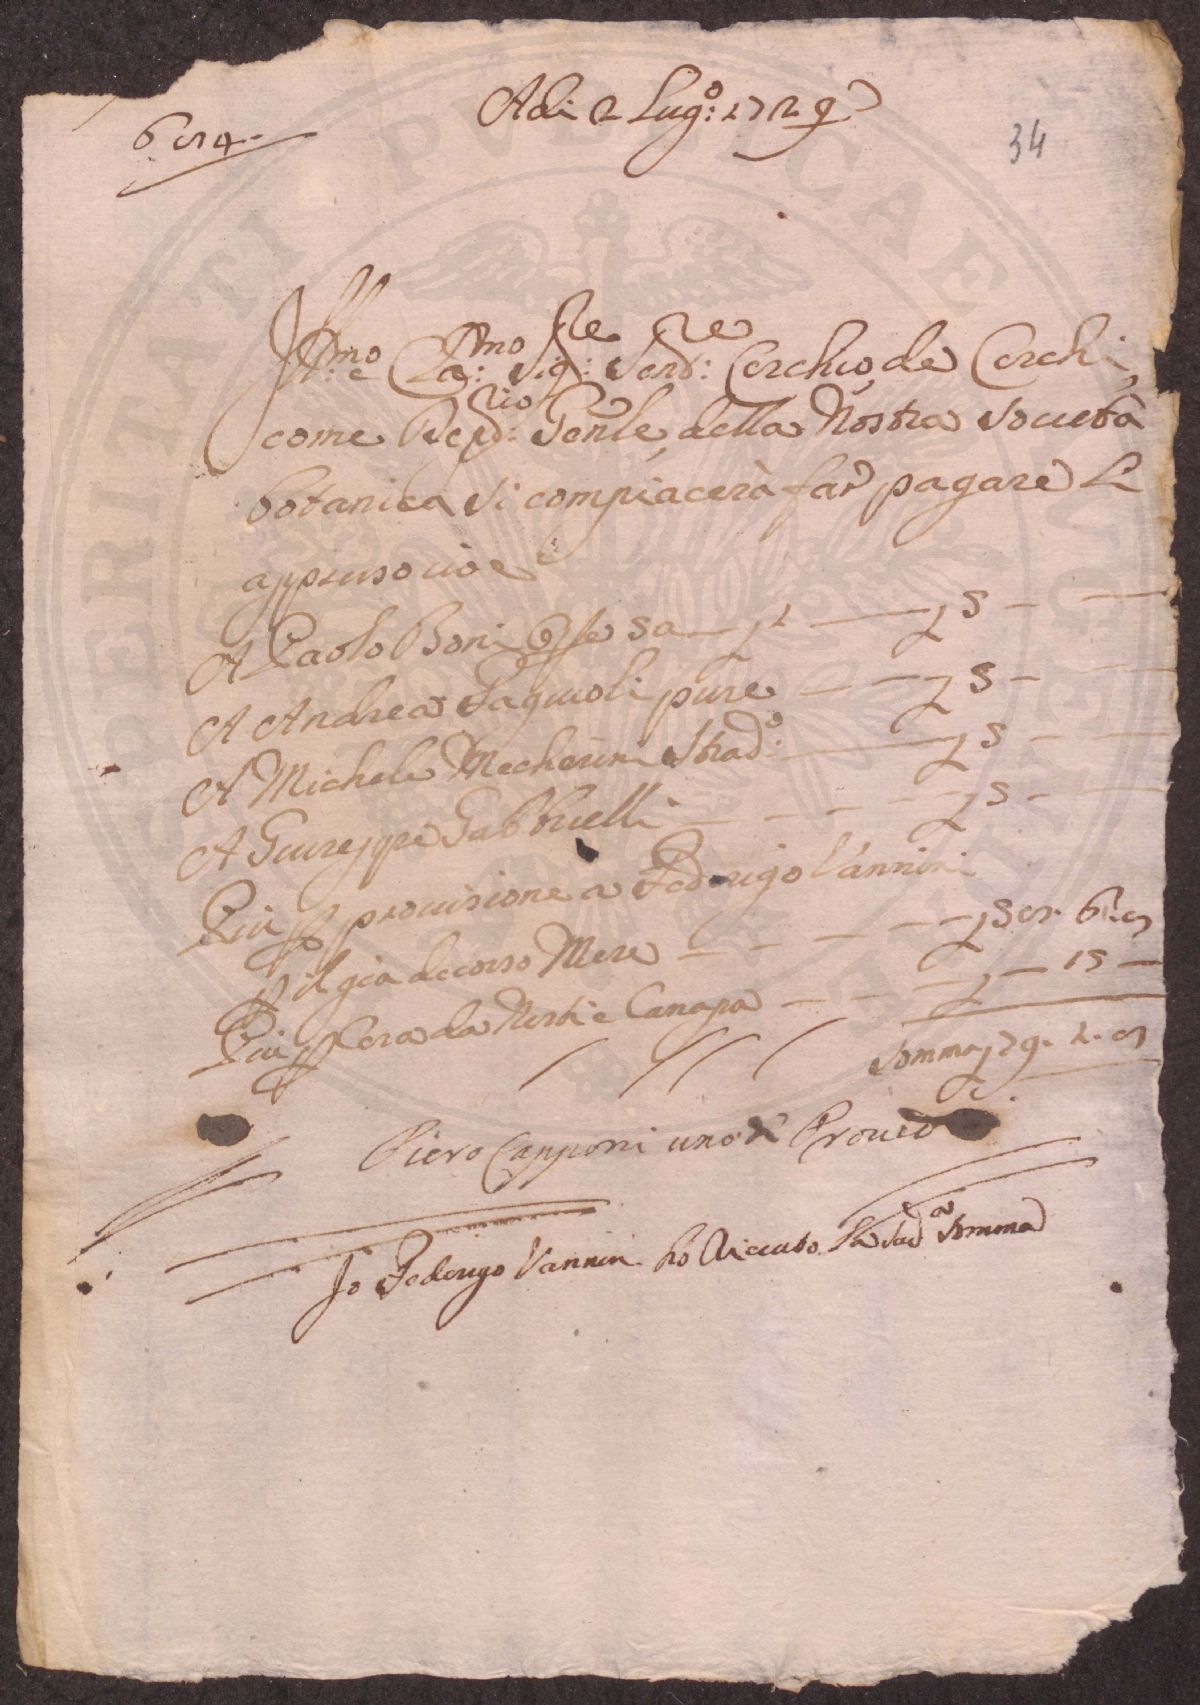 Adi 2 Lug.o: 1729
34
Ill:mo e Cla:mo Sig:re Send:re Cerchio de Cerchi,
come Depo:rio Genle, della Nostra Società
botanica si compiacerà far pagare Li
appresso cioè
A Paolo Boni 5
A Andrea Fagiuoli pure 5
A Michele Mecherini Strad:o 5
A Giuseppe Gabbrielli 5
Più p provisione a Federigo Vannini
p il già decorso Mese
Più p Cera da Nesti e Canapa 15
Somma
Piero Capponi uno de Proved
Io Federigo Vannini ho Riceuto La Sud.a Somma